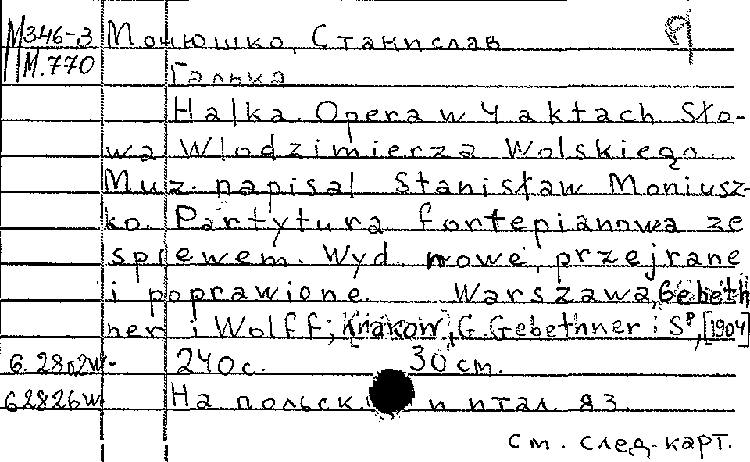 М346-3 Монюшко, Станислав Я
М.770 Галька
Halka. Opera w 4 aktach Sło-
wa Włodzimierza Wolskiego.
Muz. napisał Stanisław Moniusz-
ko. Partytura fortepianowa ze
spiewem. Wyd. nowe, przejrane
i poprawione. Warszawa, Gebeth
ner i Wolff; Kraków, G. Gebethner i Sp, [1904]
240 с. 30 см.
62826w На польск. и итал. яз.
см. след. карт.